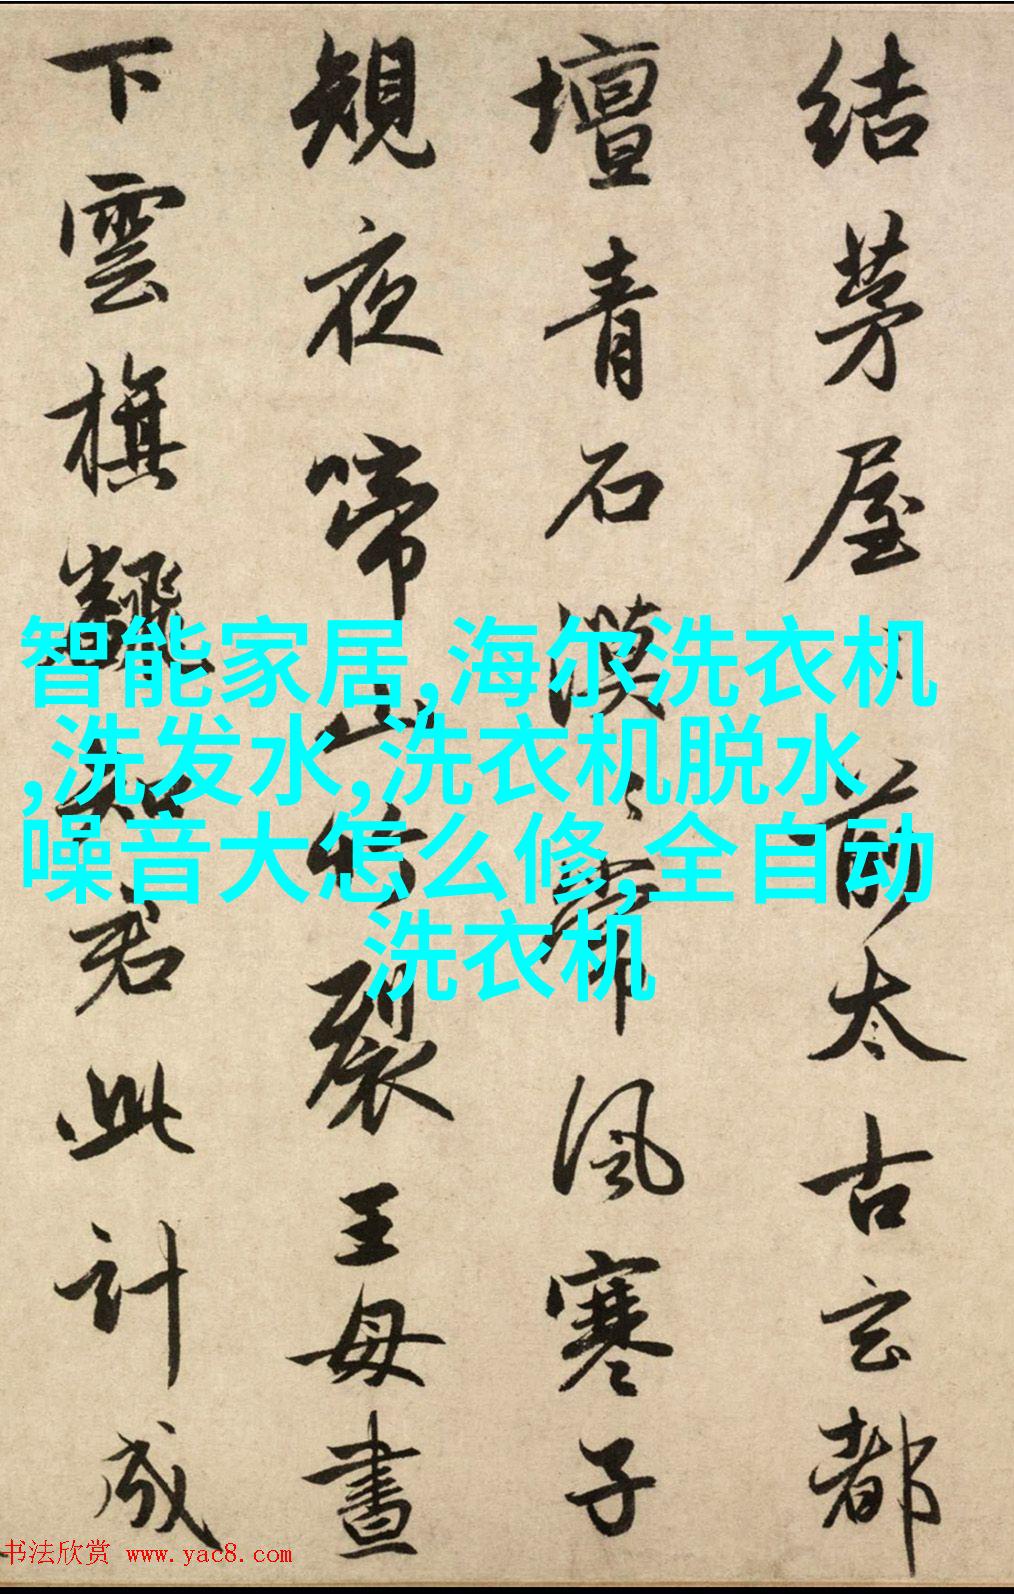 结茅屋〻前太古玄都
壇青石漠〻常風寒子
規夜啼山竹裂王母晝
下雲旗飜知君此計成
智能家居,海尔洗衣机
,洗发水,洗衣机脱水
噪音大怎么修,全自动
洗衣机
书法欣赏 www.yac8.com